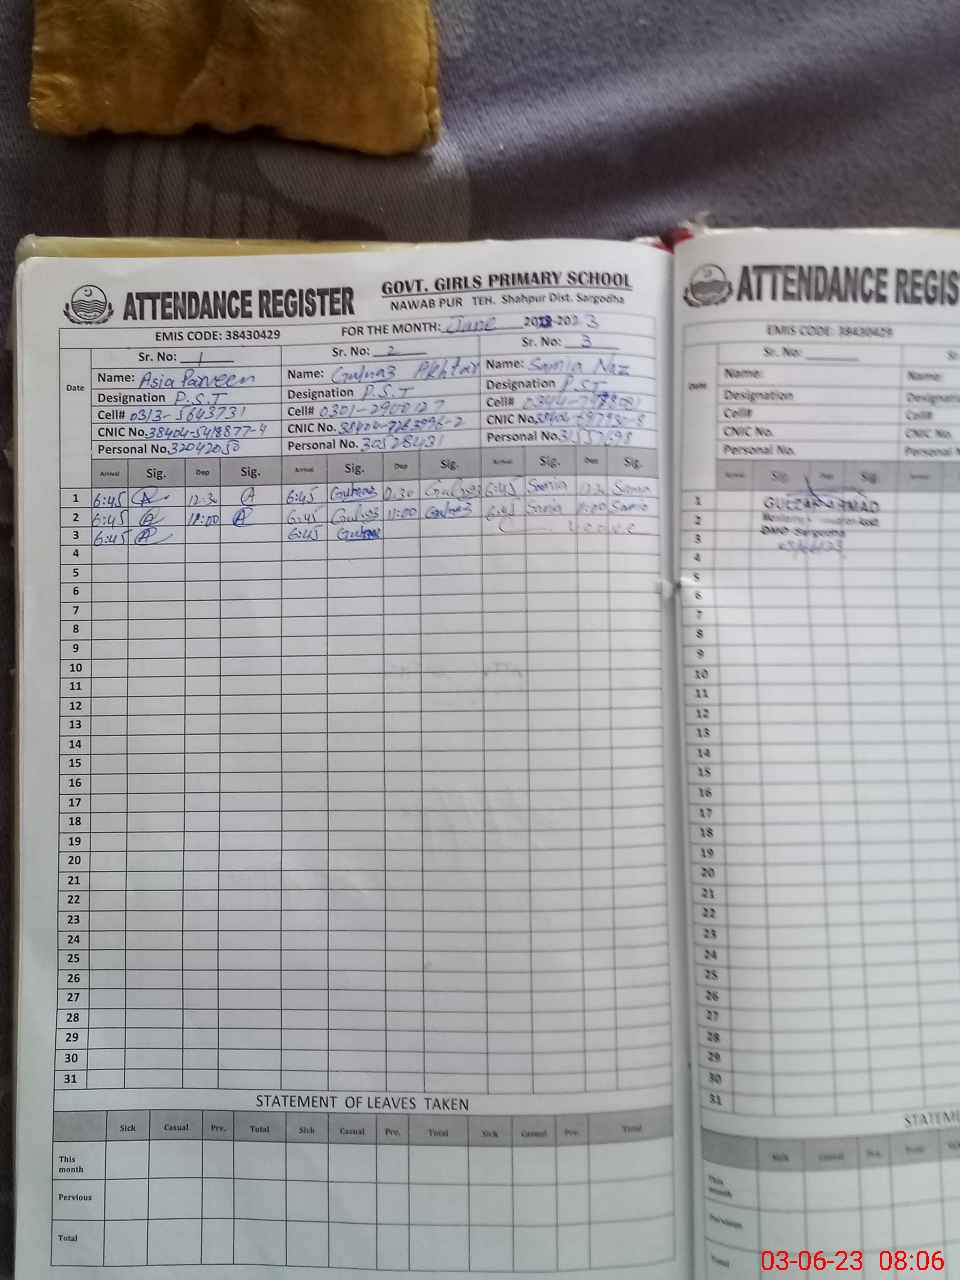 ATTENDANCE REGISTER
GOVT. GIRLS PRIMARY SCHOOL
NAWAB PUR TEH. Shahpur Dist. Sargodha
EMIS CODE: 38430429 FOR THE MONTH: June 2023
Date Sr. No: 1 Sr. No: 2 Sr. No: 3
Name: Asia Parveen Name: Gulnaz Akhtar Name: Samia Naz
Designation P.S.T Designation P.S.T Designation P.S.T
Cell# 0313-5643731 Cell# 0301-2900127 Cell#
CNIC No. 38404-5418877-4 CNIC No. CNIC No.
Personal No. 32042050 Personal No. 30528431 Personal No.
Arrival Sig. Dep Sig. Arrival Sig. Dep Sig. Arrival Sig. Dep Sig.
1 6:45 A 12:30 A 6:45 Gulnaz 12:30 Gulnaz 6:45 Samia 12:30 Samia
2 6:45 A 11:00 A 6:45 Gulnaz 11:00 Gulnaz 6:45 Samia 11:00 Samia
3 6:45 A 6:45 Gulnaz Leave
4
5
6
7
8
9
10
11
12
13
14
15
16
17
18
19
20
21
22
23
24
25
26
27
28
29
30
31
STATEMENT OF LEAVES TAKEN
Sick Casual Pre. Total Sick Casual Pre. Total Sick Casual Pre. Total
This month
Pervious
Total
ATTENDANCE REGIS
EMIS CODE: 38430429
Date Sr. No: Sr
Name: Name:
Designation Designa
Cell# Cell#
CNIC No. CNIC No.
Personal No. Personal N
Sig. Dep Sig.
1
GULZAR AHMAD
2
3
DMO Sargodha
4
5
6
7
8
9
10
11
12
13
14
15
16
17
18
19
20
21
22
23
24
25
26
27
28
29
30
31
STATEME
Sick Casual Pre. Total
This month
Pervious
Total
03-06-23 08:06